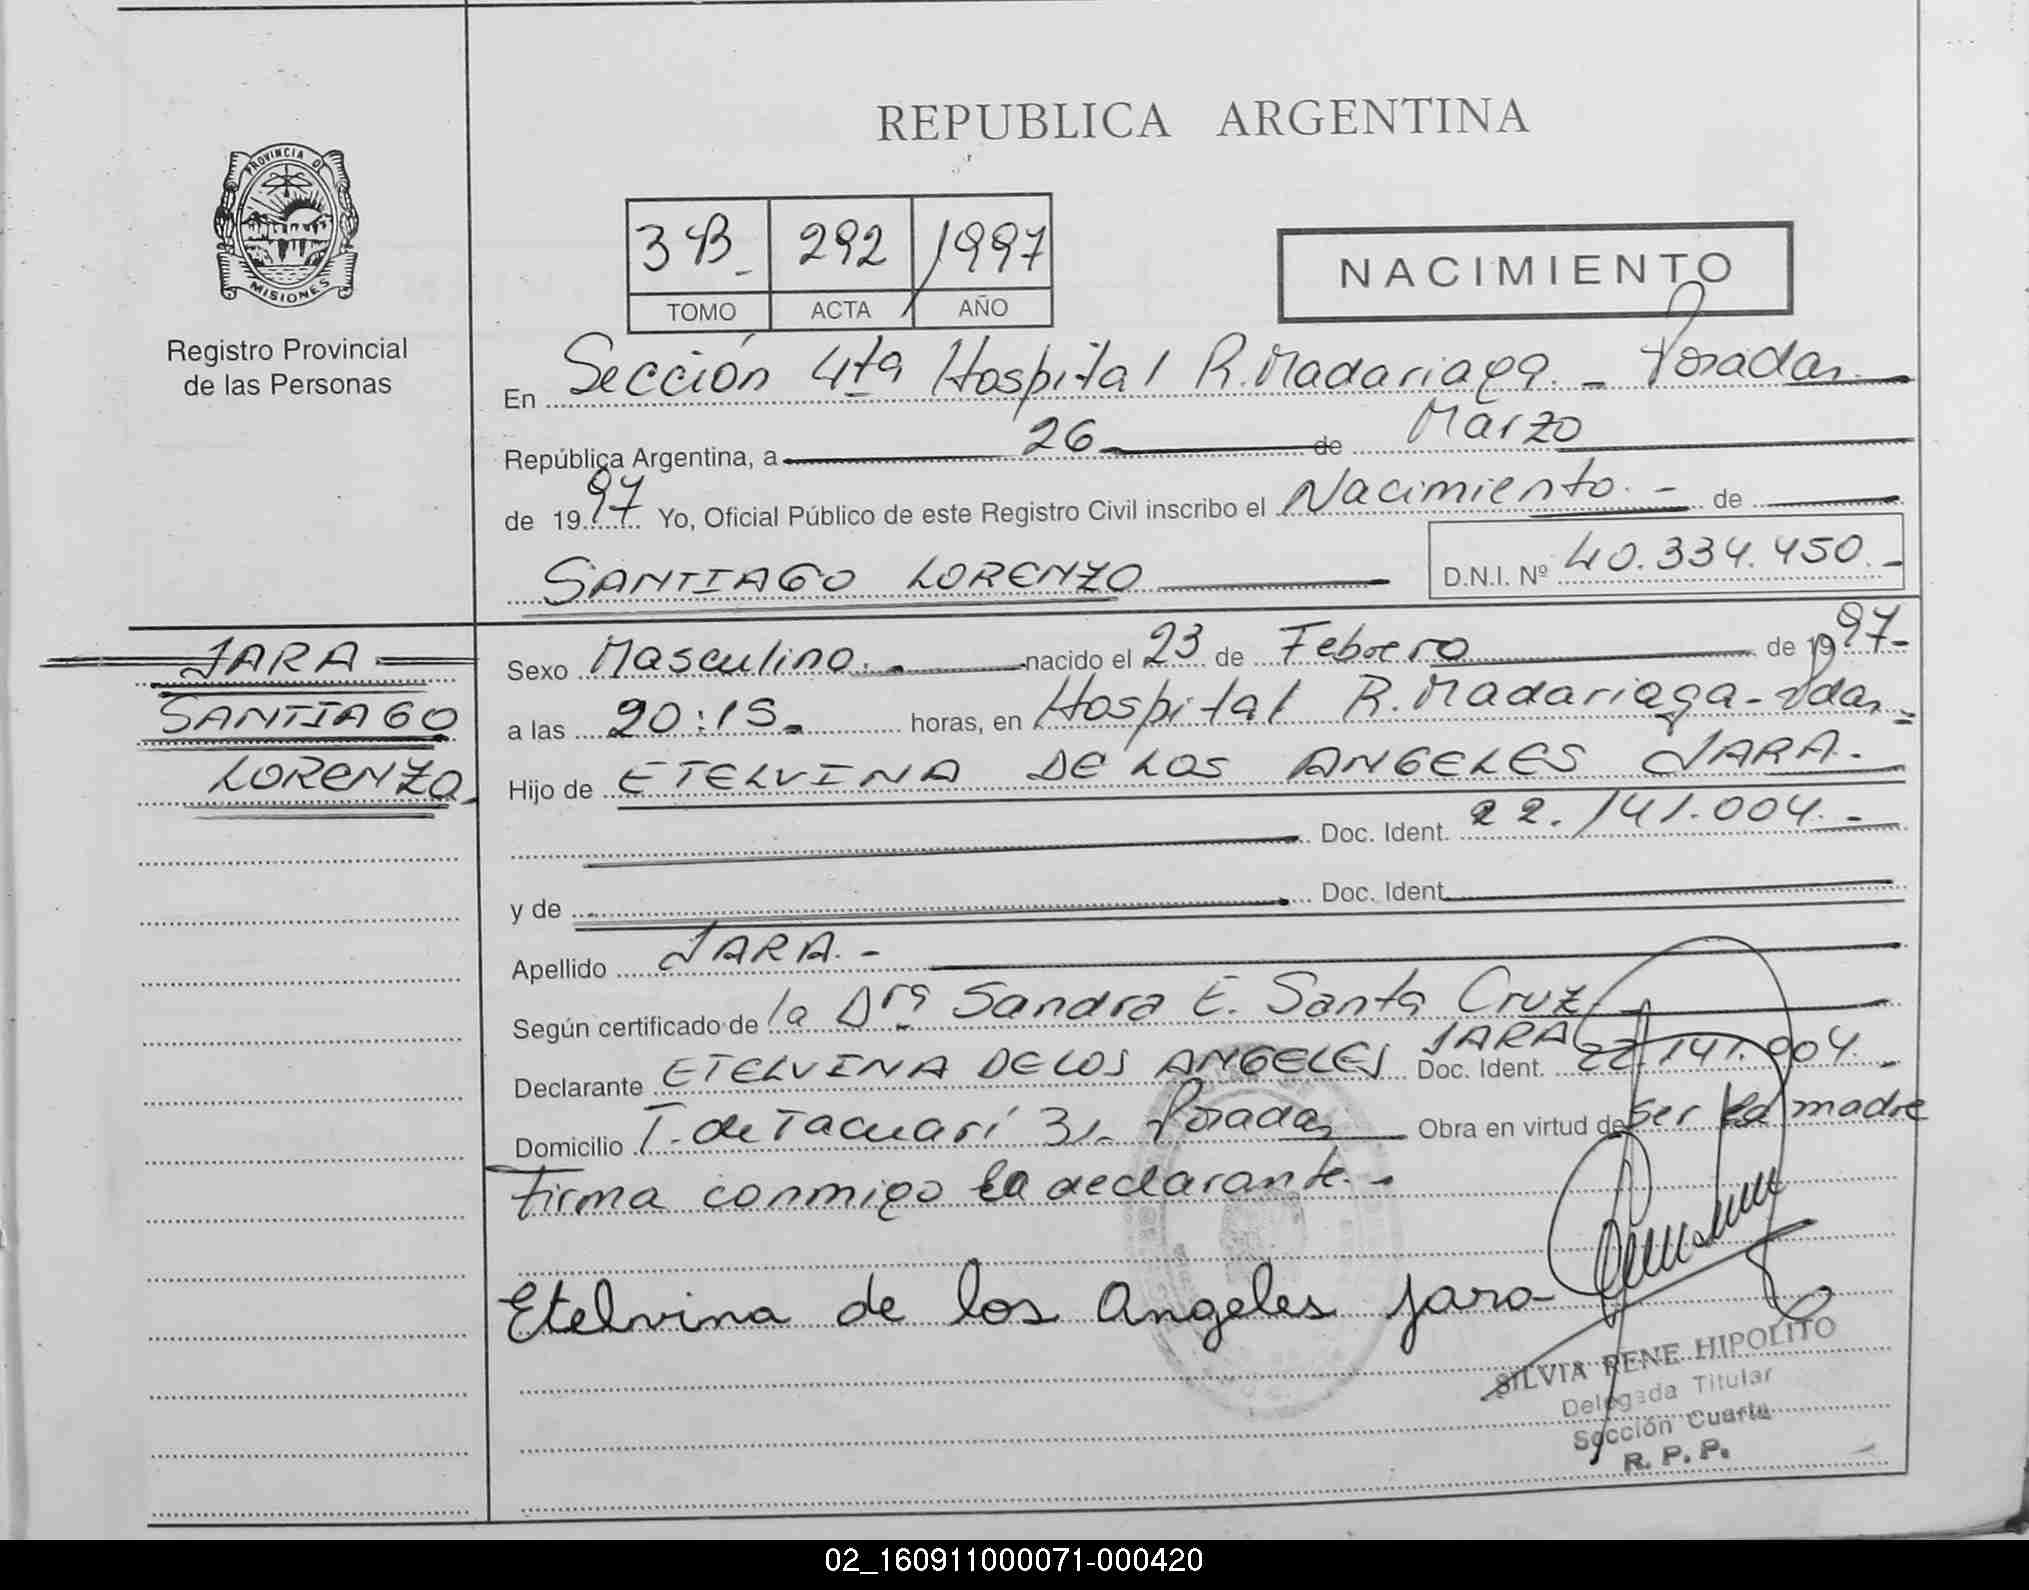 REPUBLICA ARGENTINA
PROVINCIA DE
MISIONES
Registro Provincial
de las Personas
3B_ 292 1997
TOMO ACTA AÑO
NACIMIENTO
En Sección 4ta Hospital R. Madariaga. - Posadas
República Argentina, a 26 de Marzo
de 1997 Yo, Oficial Público de este Registro Civil inscribo el Nacimiento. - de
SANTIAGO LORENZO D.N.I. Nº 40.334.450. -
JARA
SANTIAGO
LORENZO
Sexo Masculino. - nacido el 23 de Febrero de 1997-
a las 20:15. horas, en Hospital R. Madariaga - Pdas. -
Hijo de ETELVINA DE LOS ANGELES JARA. -
Doc. Ident. 22.141.004. -
y de Doc. Ident.
Apellido JARA. -
Según certificado de la Dra Sandra E. Santa Cruz
Declarante ETELVINA DE LOS ANGELES JARA Doc. Ident. 22.141.004. -
Domicilio T. de Tacuarí 31. Posadas Obra en virtud de ser la madre
firma conmigo la declarante. -
Etelvina de los Angeles Jara
SILVIA RENE HIPOLITO
Delegada Titular
Sección Cuarta
R. P. P.
02_160911000071-000420